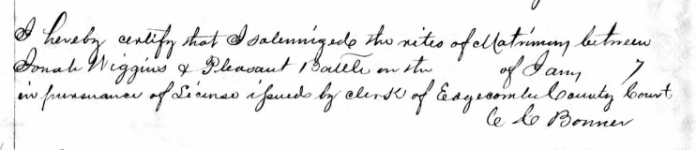 I hereby certify that I solemnized the rites of Matrimony between
Jonah Wiggins & Pleasant Battle on the of Jany 7
in pursuance of License issued by clerk of Edgecombe County Court
C C Bonner